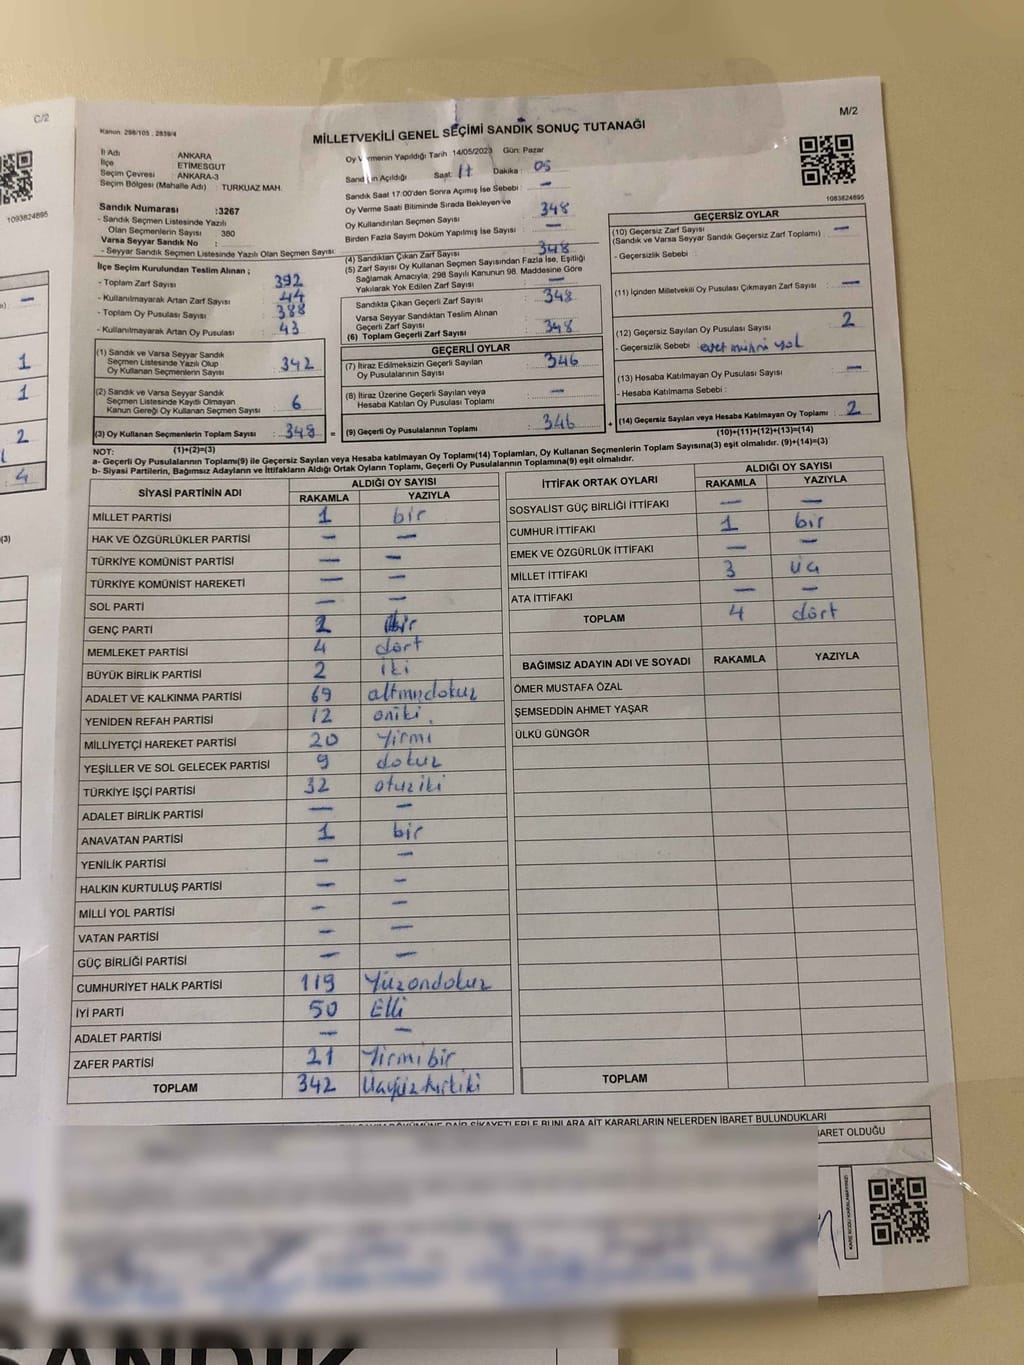 C/2
M/2
Kanun: 298/105 , 2839/4
MİLLETVEKİLİ GENEL SEÇİMİ SANDIK SONUÇ TUTANAĞI
İl Adı : ANKARA
İlçe : ETİMESGUT
Seçim Çevresi : ANKARA-3
Seçim Bölgesi (Mahalle Adı) : TURKUAZ MAH.
Sandık Numarası :3267
- Sandık Seçmen Listesinde Yazılı
Olan Seçmenlerin Sayısı : 380
Varsa Seyyar Sandık No :
- Seyyar Sandık Seçmen Listesinde Yazılı Olan Seçmen Sayısı:
Oy Vermenin Yapıldığı Tarih 14/05/2023 Gün: Pazar
Sandığın Açıldığı Saat: 17 Dakika : 05
Sandık Saat 17:00'den Sonra Açılmış İse Sebebi : —
Oy Verme Saati Bitiminde Sırada Bekleyen ve
Oy Kullandırılan Seçmen Sayısı : 348
Birden Fazla Sayım Döküm Yapılmış İse Sayısı : —
1093824895
1083824895
İlçe Seçim Kurulundan Teslim Alınan ;
- Toplam Zarf Sayısı : 392
- Kullanılmayarak Artan Zarf Sayısı : 44
- Toplam Oy Pusulası Sayısı : 388
- Kullanılmayarak Artan Oy Pusulası : 43
(1) Sandık ve Varsa Seyyar Sandık
Seçmen Listesinde Yazılı Olup
Oy Kullanan Seçmenlerin Sayısı : 342
(2) Sandık ve Varsa Seyyar Sandık
Seçmen Listesinde Kayıtlı Olmayan
Kanun Gereği Oy Kullanan Seçmen Sayısı : 6
(3) Oy Kullanan Seçmenlerin Toplam Sayısı : 348 =
(1)+(2)=(3)
(4) Sandıktan Çıkan Zarf Sayısı : 348
(5) Zarf Sayısı Oy Kullanan Seçmen Sayısından Fazla İse, Eşitliği
Sağlamak Amacıyla, 298 Sayılı Kanunun 98. Maddesine Göre
Yakılarak Yok Edilen Zarf Sayısı : —
Sandıkta Çıkan Geçerli Zarf Sayısı : 348
Varsa Seyyar Sandıktan Teslim Alınan
Geçerli Zarf Sayısı
(6) Toplam Geçerli Zarf Sayısı : 348
GEÇERLİ OYLAR
(7) İtiraz Edilmeksizin Geçerli Sayılan
Oy Pusulalarının Sayısı : 346
(8) İtiraz Üzerine Geçerli Sayılan veya
Hesaba Katılan Oy Pusulası Toplamı : —
(9) Geçerli Oy Pusulalarının Toplamı : 346 +
GEÇERSİZ OYLAR
(10) Geçersiz Zarf Sayısı : —
(Sandık ve Varsa Seyyar Sandık Geçersiz Zarf Toplamı)
- Geçersizlik Sebebi :
(11) İçinden Milletvekili Oy Pusulası Çıkmayan Zarf Sayısı : —
(12) Geçersiz Sayılan Oy Pusulası Sayısı : 2
- Geçersizlik Sebebi : evet mührü yok
(13) Hesaba Katılmayan Oy Pusulası Sayısı : —
- Hesaba Katılmama Sebebi :
(14) Geçersiz Sayılan veya Hesaba Katılmayan Oy Toplamı : 2
(10)+(11)+(12)+(13)=(14)
NOT:
a- Geçerli Oy Pusulalarının Toplamı(9) ile Geçersiz Sayılan veya Hesaba katılmayan Oy Toplamı(14) Toplamları, Oy Kullanan Seçmenlerin Toplam Sayısına(3) eşit olmalıdır. (9)+(14)=(3)
b- Siyasi Partilerin, Bağımsız Adayların ve İttifakların Aldığı Ortak Oyların Toplamı, Geçerli Oy Pusulalarının Toplamına(9) eşit olmalıdır.
SİYASİ PARTİNİN ADI ALDIĞI OY SAYISI
RAKAMLA YAZIYLA
MİLLET PARTİSİ 1 bir
HAK VE ÖZGÜRLÜKLER PARTİSİ — —
TÜRKİYE KOMÜNİST PARTİSİ — —
TÜRKİYE KOMÜNİST HAREKETİ — —
SOL PARTİ — —
GENÇ PARTİ 2
MEMLEKET PARTİSİ 4 dört
BÜYÜK BİRLİK PARTİSİ 2 iki
ADALET VE KALKINMA PARTİSİ 69 altmışdokuz
YENİDEN REFAH PARTİSİ 12 oniki
MİLLİYETÇİ HAREKET PARTİSİ 20 Yirmi
YEŞİLLER VE SOL GELECEK PARTİSİ 9 dokuz
TÜRKİYE İŞÇİ PARTİSİ 32 otuziki
ADALET BİRLİK PARTİSİ — —
ANAVATAN PARTİSİ 1 bir
YENİLİK PARTİSİ — —
HALKIN KURTULUŞ PARTİSİ — —
MİLLİ YOL PARTİSİ — —
VATAN PARTİSİ — —
GÜÇ BİRLİĞİ PARTİSİ — —
CUMHURİYET HALK PARTİSİ 119 Yüzondokuz
İYİ PARTİ 50 Elli
ADALET PARTİSİ — —
ZAFER PARTİSİ 21 Yirmibir
TOPLAM 342 Üçyüzkırkiki
İTTİFAK ORTAK OYLARI ALDIĞI OY SAYISI
RAKAMLA YAZIYLA
SOSYALİST GÜÇ BİRLİĞİ İTTİFAKI — —
CUMHUR İTTİFAKI 1 bir
EMEK VE ÖZGÜRLÜK İTTİFAKI — —
MİLLET İTTİFAKI 3 üç
ATA İTTİFAKI — —
TOPLAM 4 dört
BAĞIMSIZ ADAYIN ADI VE SOYADI RAKAMLA YAZIYLA
ÖMER MUSTAFA ÖZAL
ŞEMSEDDİN AHMET YAŞAR
ÜLKÜ GÜNGÖR
TOPLAM
ŞİKAYETLERLE BUNLARA AİT KARARLARIN NELERDEN İBARET BULUNDUKLARI
BARET OLDUĞU
—
1
1
2
4
(3)
SANDIK